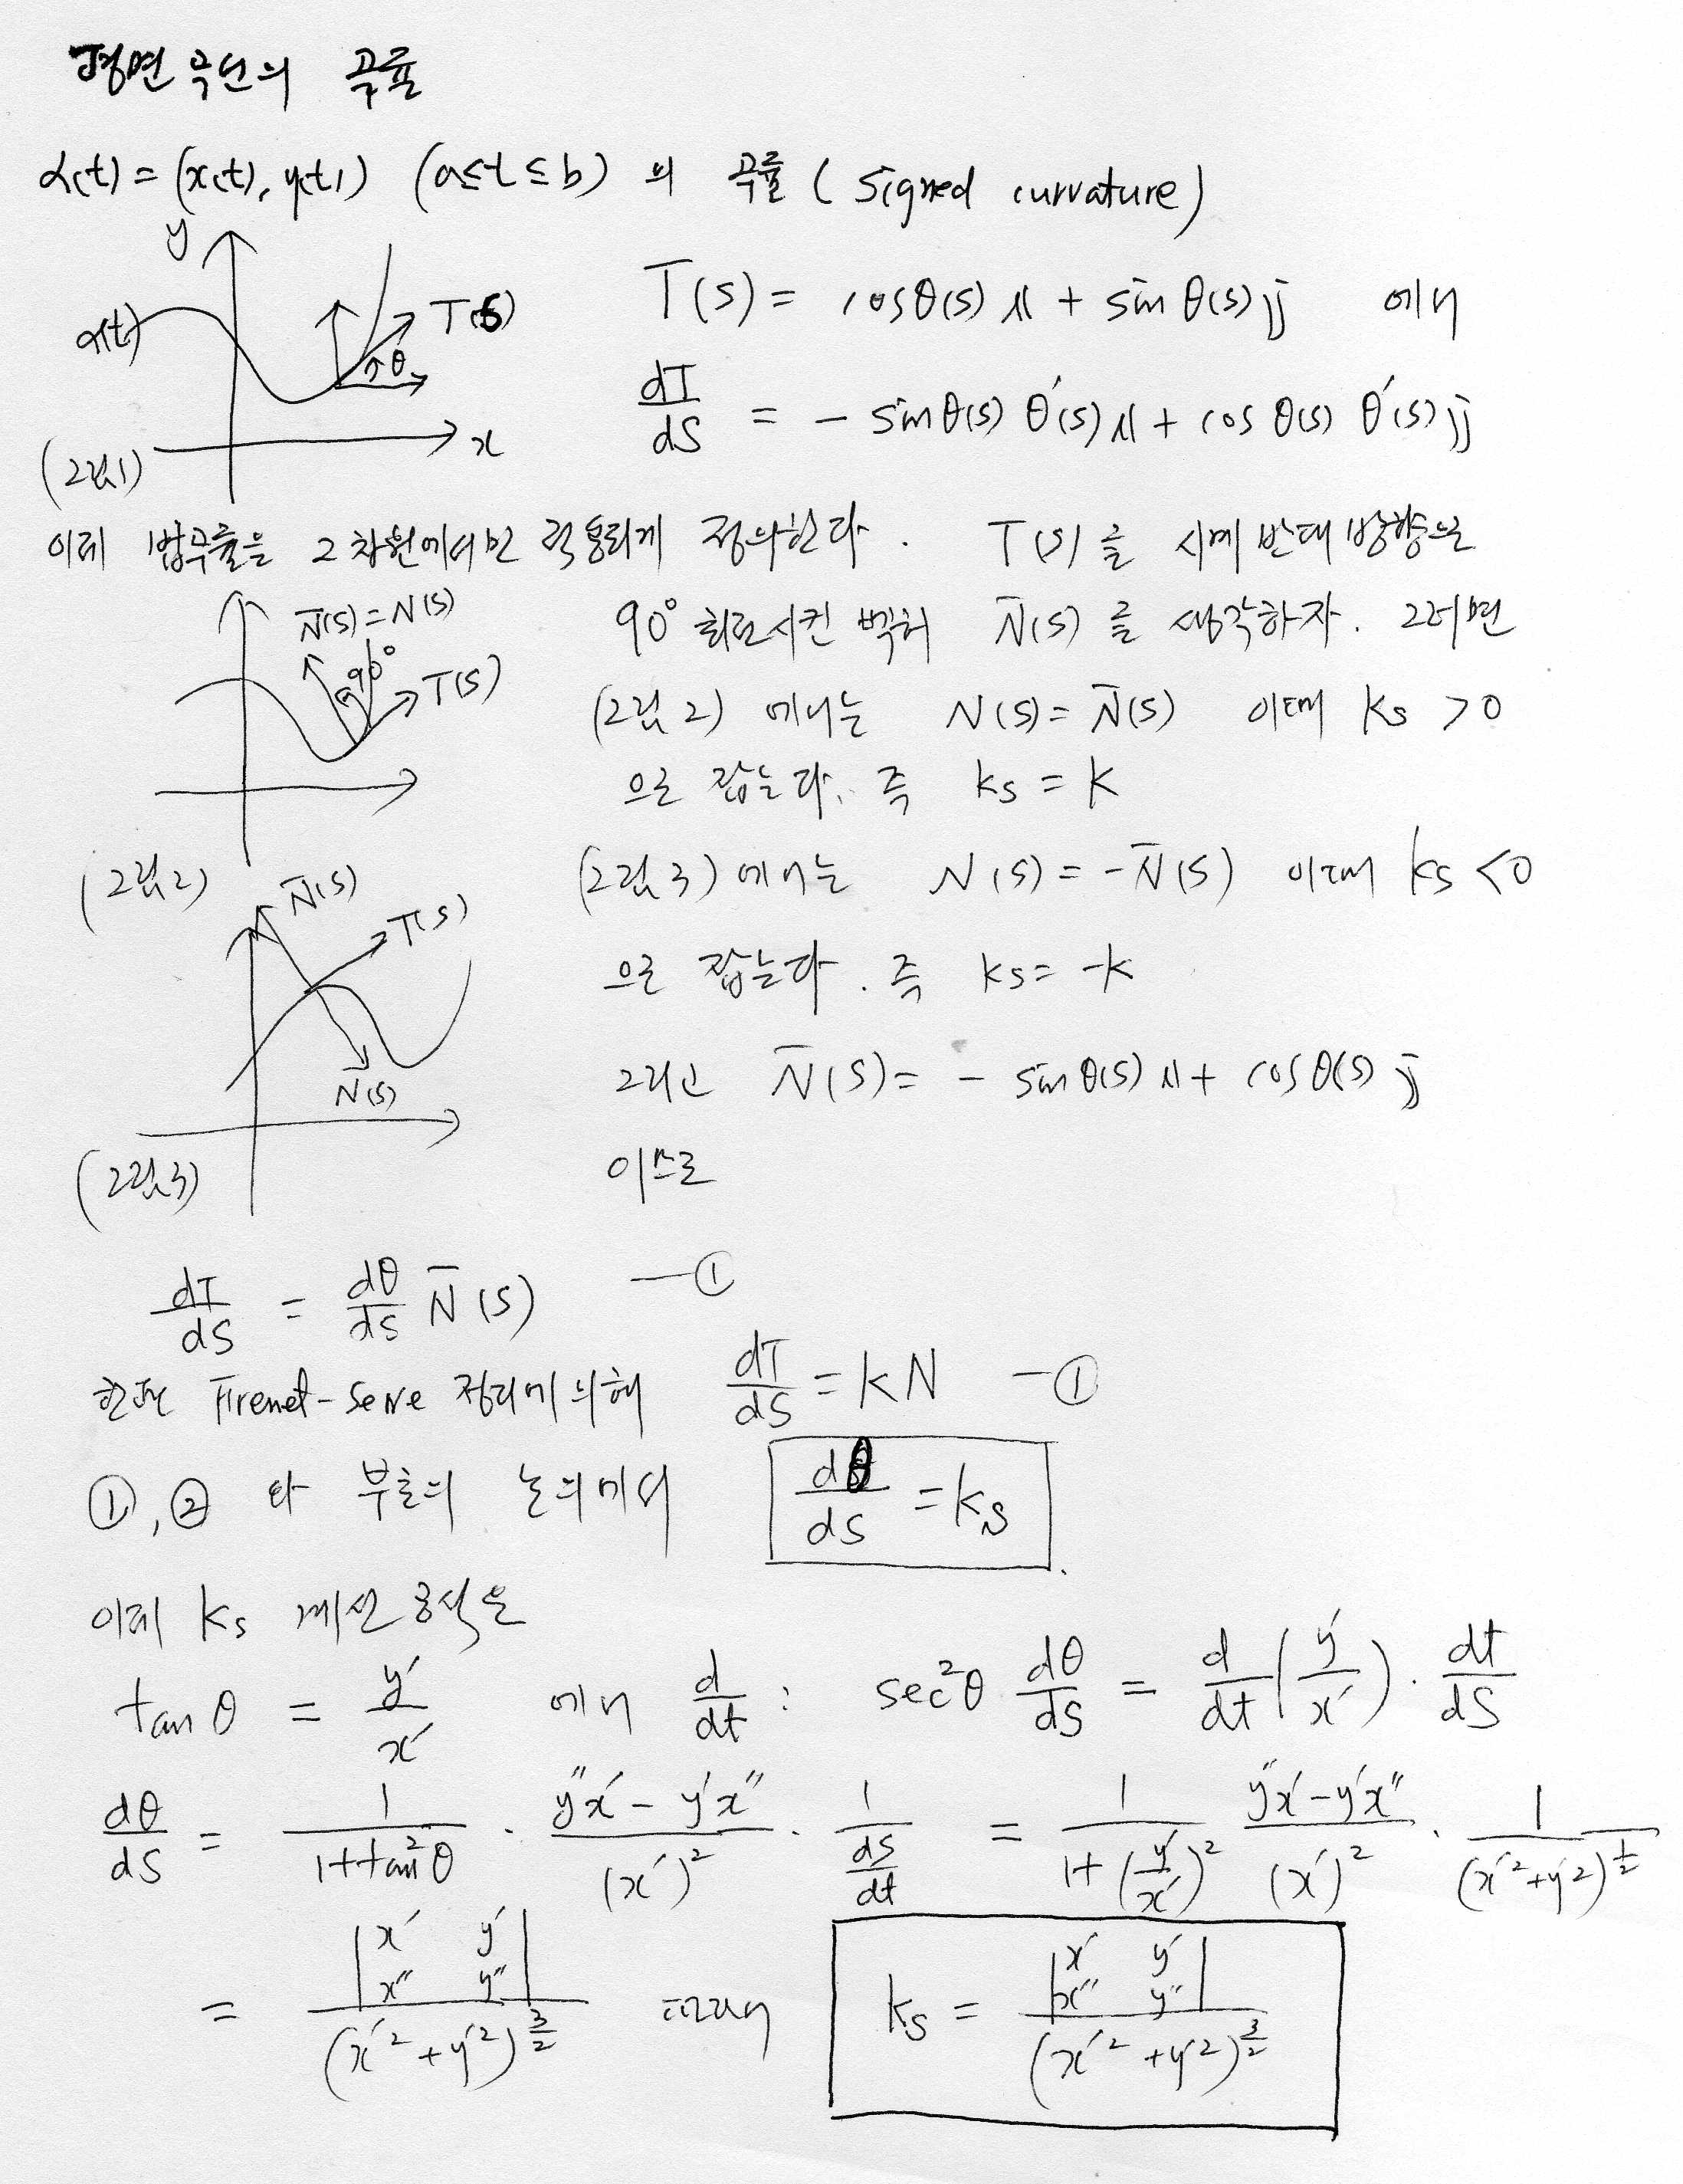 평면 곡선의 곡률
α(t) = (x(t), y(t)) (a≤t≤b) 의 곡률 (signed curvature)
y
α(t)
T(s)
θ
x
(그림1)
T(s) = cosθ(s) i + sinθ(s) j 에서
dT/ds = - sinθ(s) θ'(s) i + cosθ(s) θ'(s) j
이제 법곡률을 2차원에서만 적용되게 정의한다. T(s)를 시계 반대 방향으로
N̄(s)=N(s)
90°
T(s)
(그림2)
90° 회전시킨 벡터 N̄(s)를 생각하자. 그러면
(그림 2) 에서는 N(s) = N̄(s) 이때 ks > 0
으로 잡는다. 즉 ks = k
N̄(s)
T(s)
N(s)
(그림3)
(그림 3) 에서는 N(s) = -N̄(s) 이때 ks < 0
으로 잡는다. 즉 ks = -k
그리고 N̄(s) = - sinθ(s) i + cosθ(s) j
이므로
dT/ds = dθ/ds N̄(s) —①
한편 Frenet-Serre 정리에 의해 dT/ds = kN —①
①, ② 와 부호의 논의에서 dθ/ds = ks
이제 ks 계산 공식은
tanθ = y'/x' 에서 d/dt : sec²θ dθ/ds = d/dt (y'/x') · dt/ds
dθ/ds = 1/(1+tan²θ) · (y''x' - y'x'')/(x')² · 1/(ds/dt) = 1/(1+(y'/x')²) (y''x' - y'x'')/(x')² · 1/(x'²+y'²)^(1/2)
= |x' y' x'' y''|/(x'²+y'²)^(3/2) 따라서 ks = |x' y' x'' y''|/(x'²+y'²)^(3/2)